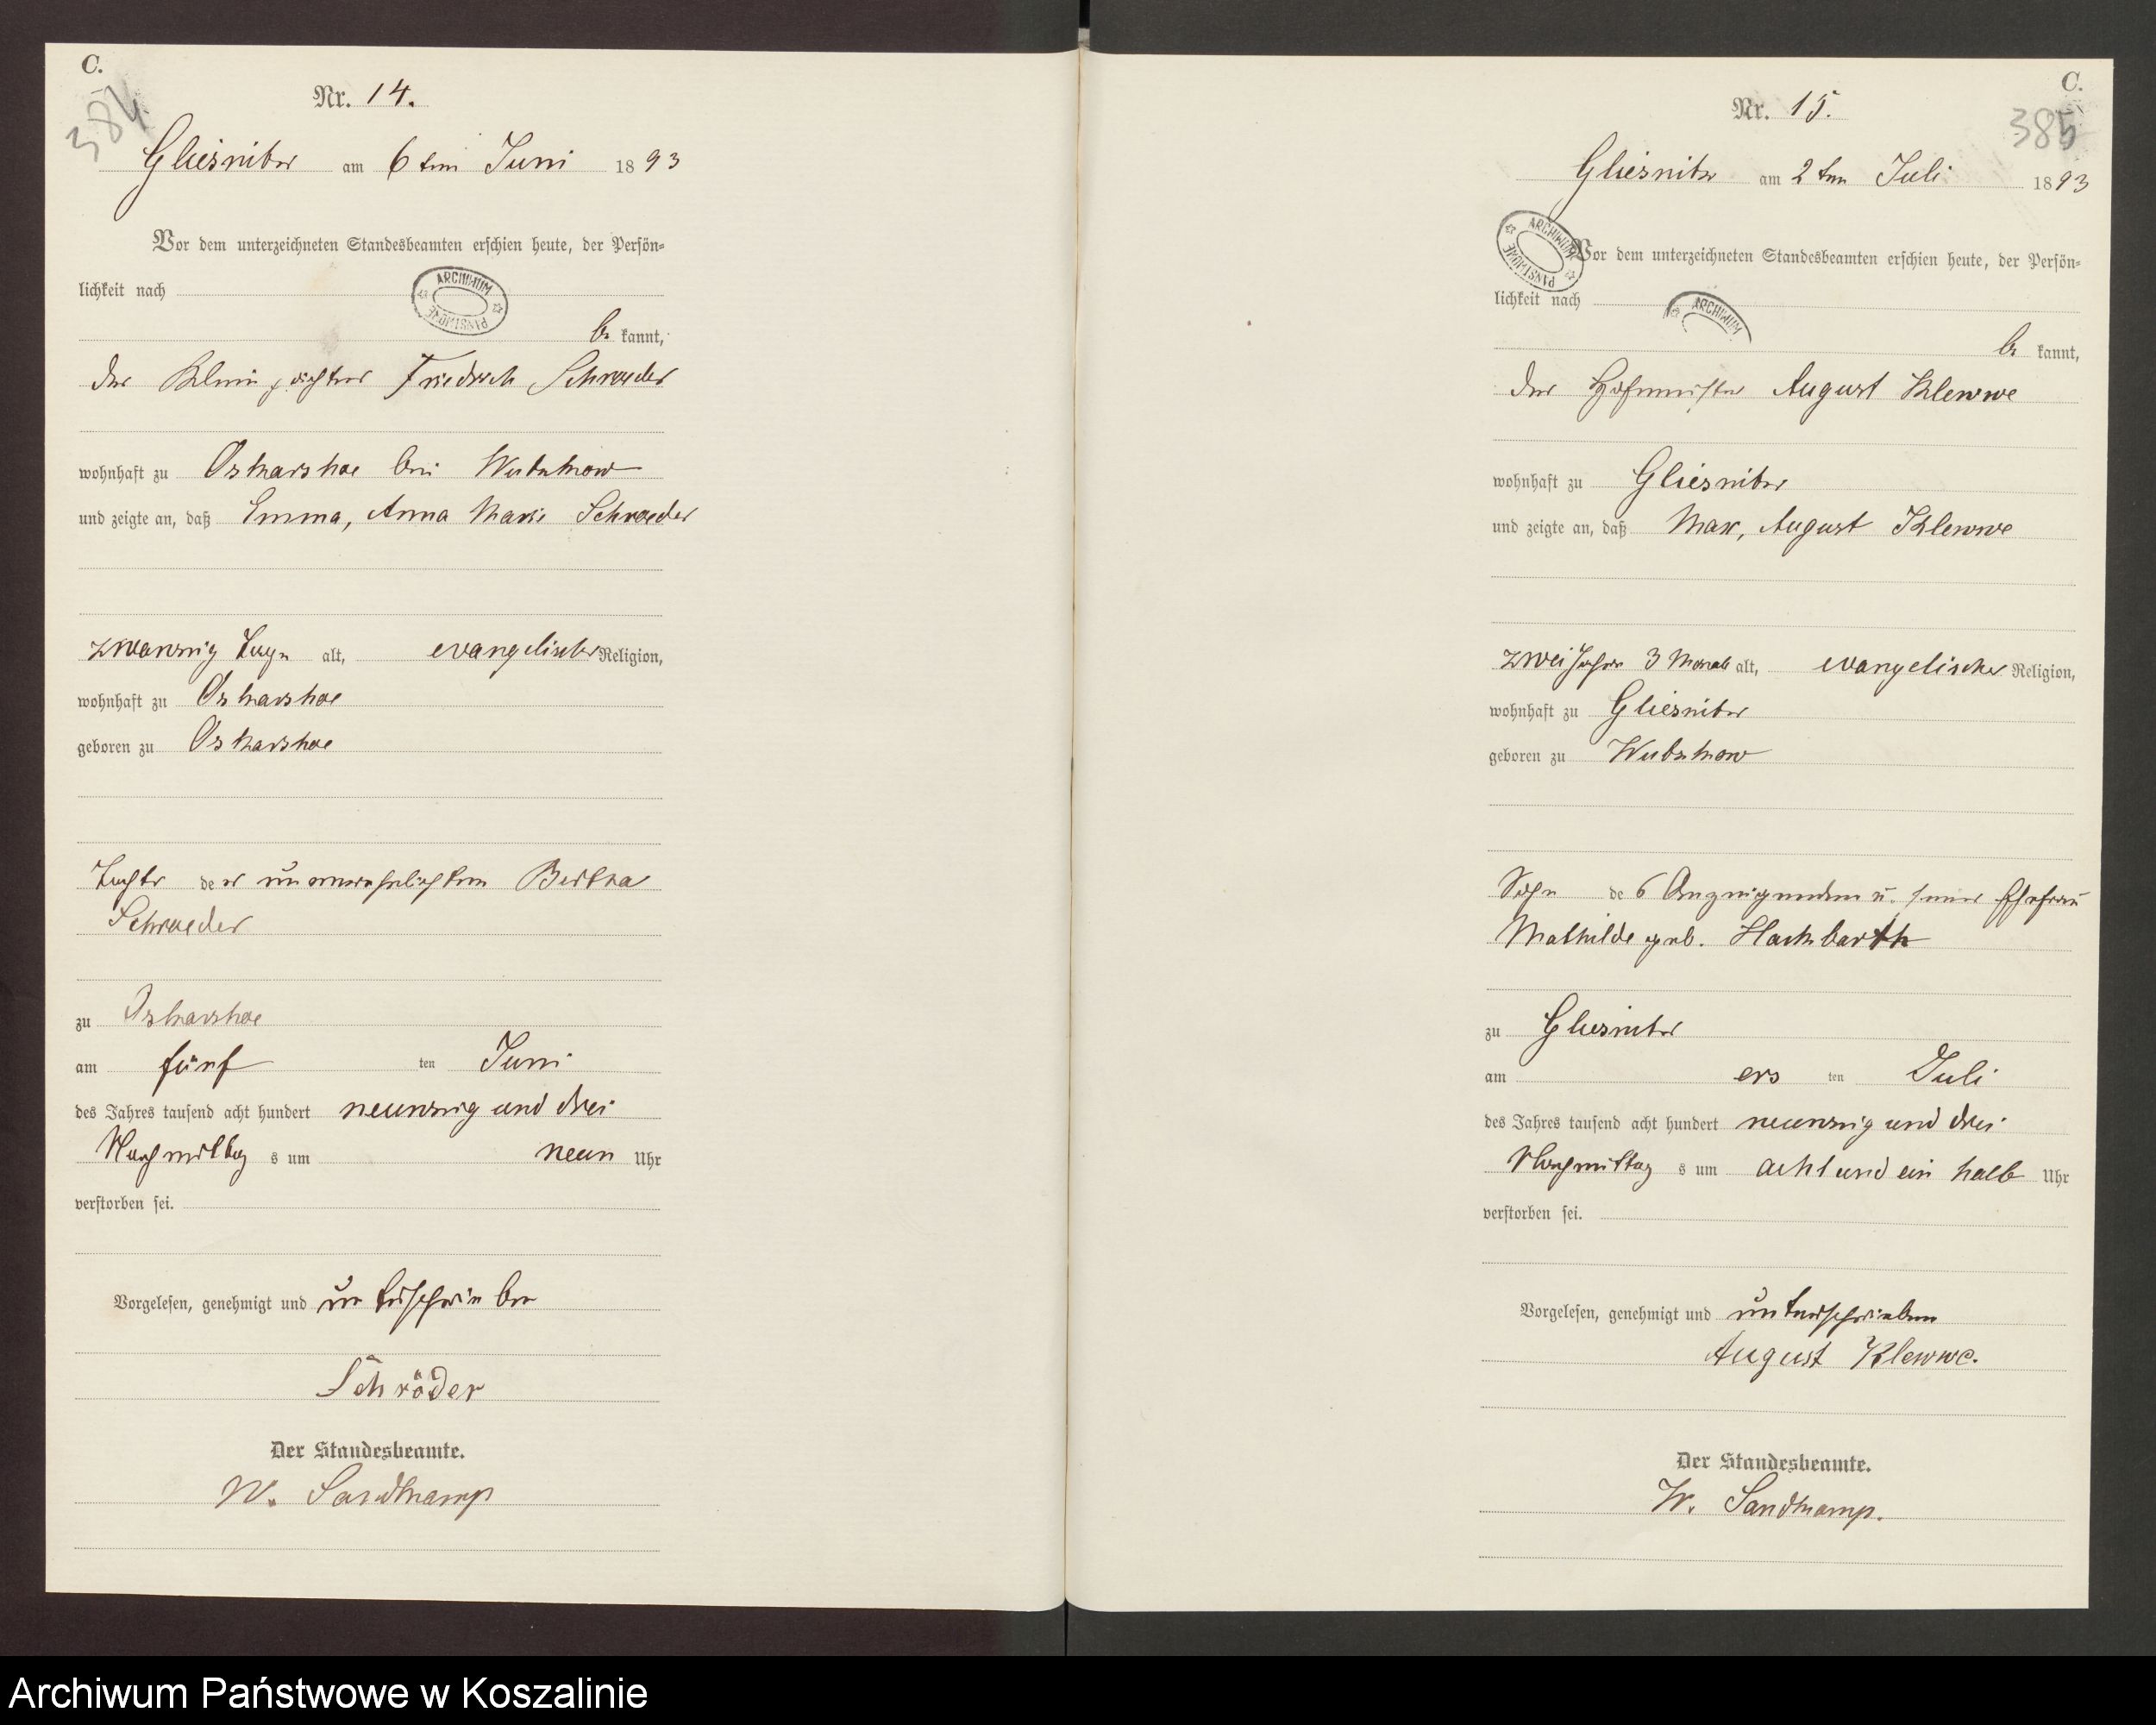 C.
384
Nr. 14.
Gliesnitz am 6 ten Juni 1893
Vor dem unterzeichneten Standesbeamten erschien heute, der Persön-
lichkeit nach
ARCHIWUM PAŃSTWOWE
be kannt,
der Kleinpächter Friedrich Schroeder
wohnhaft zu Oskarshoe bei Wutzkow
und zeigte an, daß Emma, Anna Marie Schroeder
zwanzig Tage alt, evangelischer Religion,
wohnhaft zu Oskarshoe
geboren zu Oskarshoe
Tochter der unverehelichten Bertha
Schroeder
zu Oskarshoe
am fünf ten Juni
des Jahres tausend acht hundert neunzig und drei
Nachmittag s um neun Uhr
verstorben sei.
Vorgelesen, genehmigt und unterschrieben
Schröder
Der Standesbeamte.
W. Sandkamp
C.
385
Nr. 15.
Gliesnitz am 2 ten Juli 1893
ARCHIWUM PAŃSTWOWE
Vor dem unterzeichneten Standesbeamten erschien heute, der Persön-
lichkeit nach
ARCHIWUM
be kannt,
der Hofmeister August Klewwe
wohnhaft zu Gliesnitz
und zeigte an, daß Max, August Klewwe
zwei Jahre 3 Monate alt, evangelischer Religion,
wohnhaft zu Gliesnitz
geboren zu Wutzkow
Sohn des Anzeigenden u. seiner Ehefrau
Mathilde geb. Hackbarth
zu Gliesnitz
am ers ten Juli
des Jahres tausend acht hundert neunzig und drei
Nachmittag s um acht und ein halb Uhr
verstorben sei.
Vorgelesen, genehmigt und unterschrieben
August Klewwe.
Der Standesbeamte.
W. Sandkamp.
Archiwum Państwowe w Koszalinie